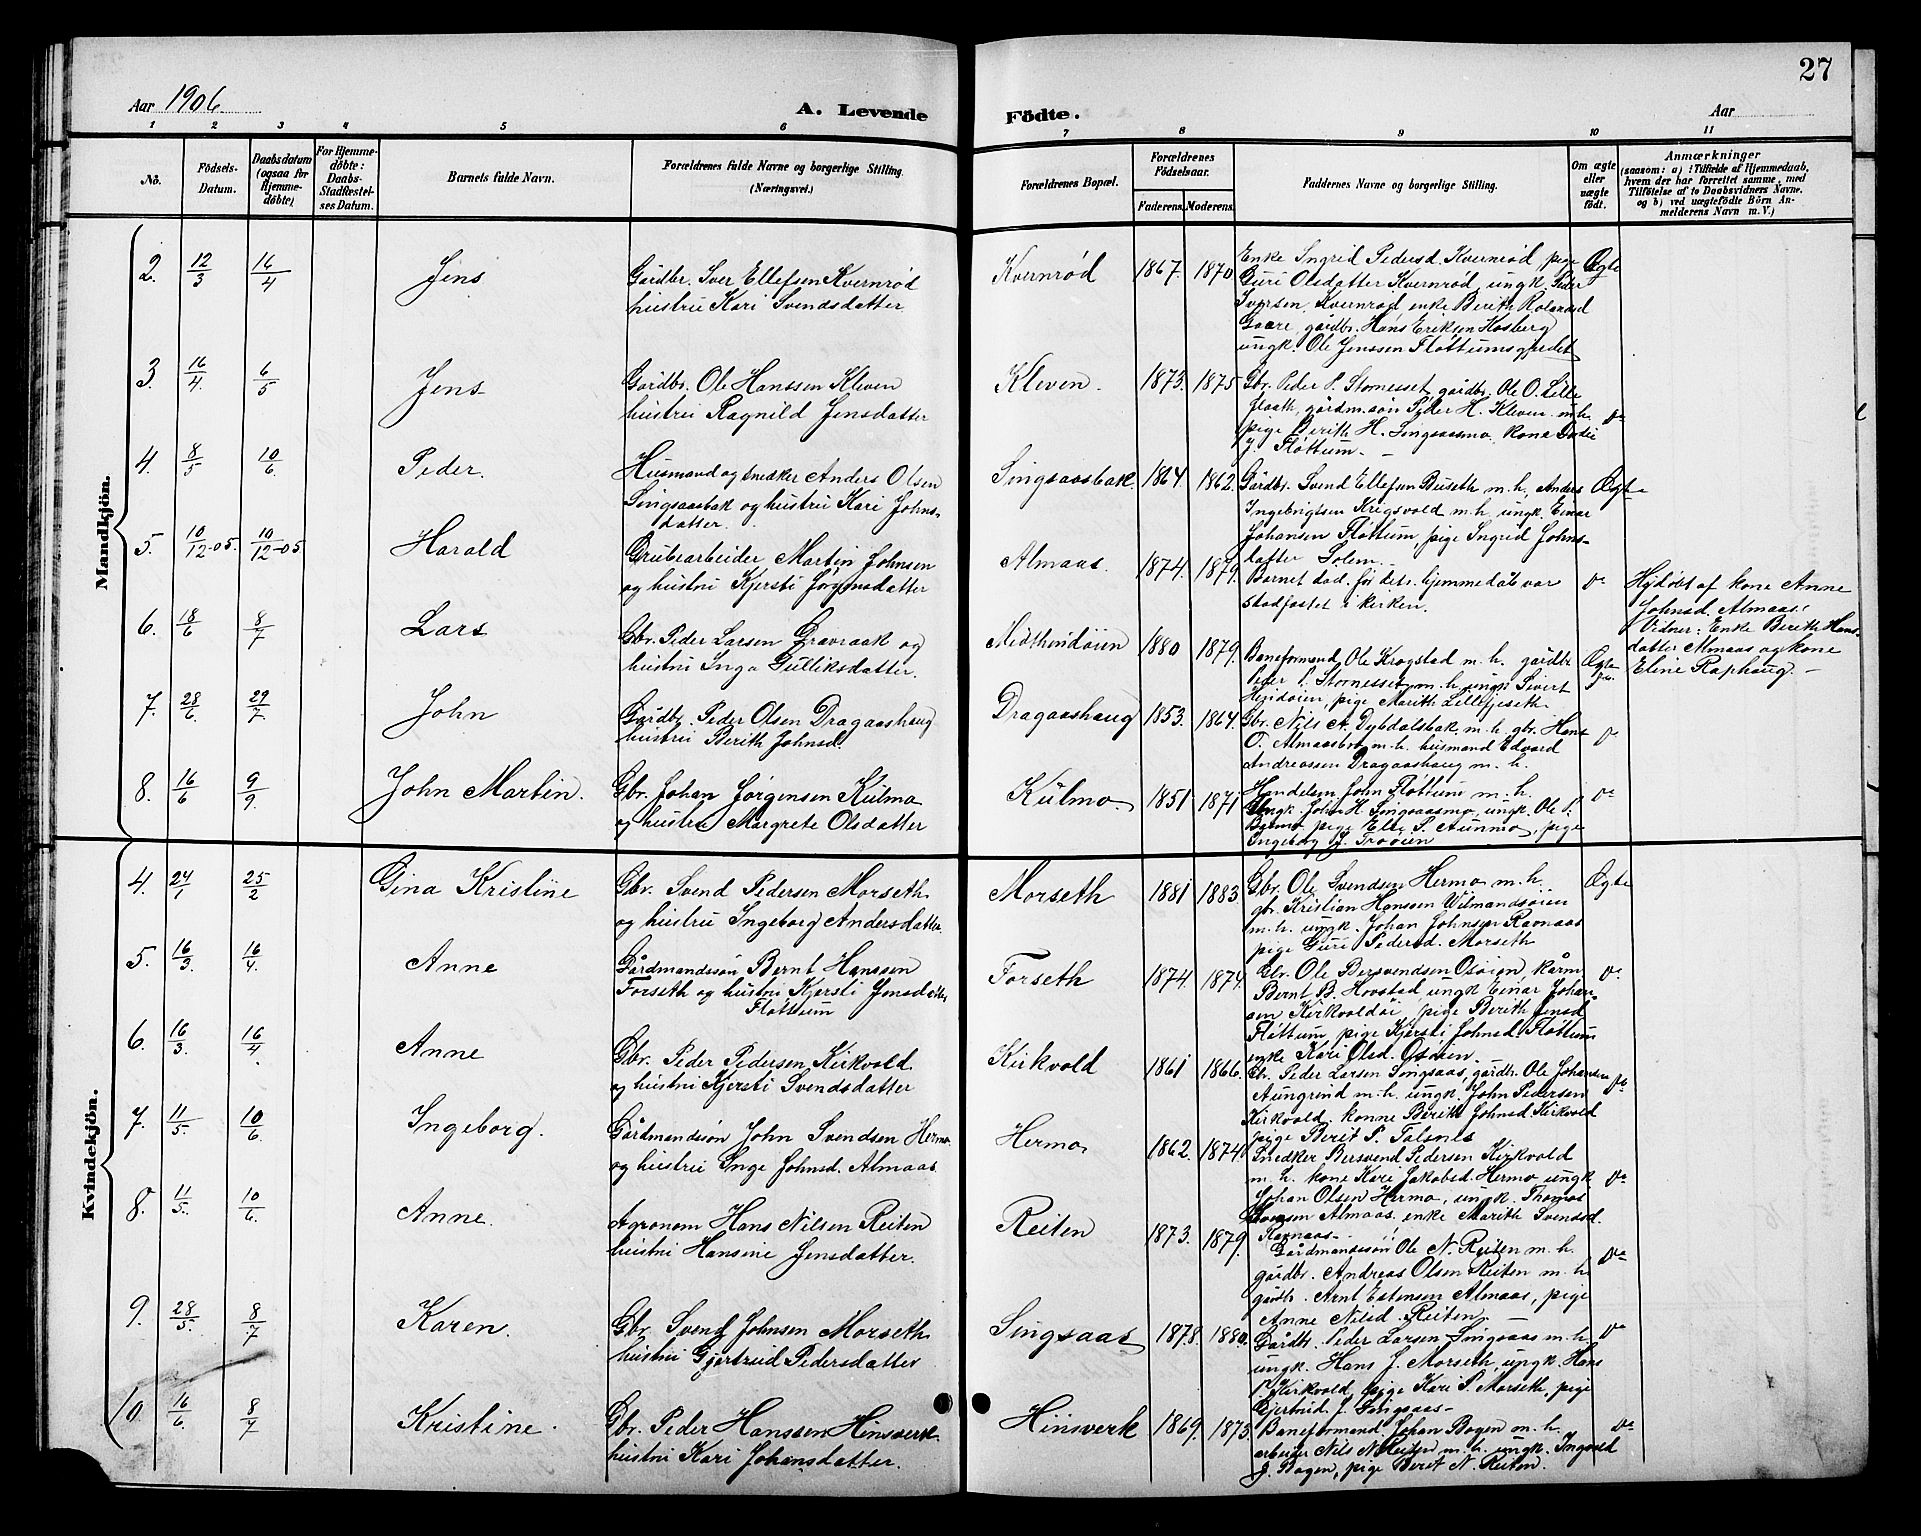 27
Aar 1906
A. Levende
Födte.
Aar
1 2 3 4 5 6 7 8 9 10 11
No.
Födsels-
Datum.
Daabsdatum
(ogsaa for
Hjemme-
döbte)
For Hjemme-
döbte:
Daabs-
Stadfæstel-
ses Datum.
Barnets fulde Navn.
Forældrenes fulde Navne og borgerlige Stilling.
(Næringsvei.)
Forældrenes Bopæl.
Forældrenes
Födselsaar.
Faderens.
Moderens.
Faddernes Navne og borgerlige Stilling.
Om ægte
eller
uægte
født.
Anmærkninger
(saasom: a) i Tilfælde af Hjemmedaab,
hvem der har forrettet samme, med
Tilföielse af to Daabsvidners Navne.
og b) ved uægtefödte Börn An-
melderens Navn m. V.)
Mandkjön.
2. 12/3 16/4 Jens
Gårdbr. Iver Ellefsen Kvernrød
hustru Kari Svendsdatter
Kvernrød 1867. 1870
Enke Ingrid Pedersd. Kvernrød, pige
Guri Olsdatter Kvernrød, ungk. Peder
Iversen Kvernrød, enke Berith Rolanrsd
Gaare, gårdbr. Hans Eriksen Hosberg
ungk. Ole Jenssen Fløttumsgjerdet
Ægte
3. 16/4 6/5 Jens
Gårdbr. Ole Hanssen Kleven
hustru Ragnild Jensdatter
Kleven. 1873. 1875
Gbr. Peder P. Stornesset, gårdbr. Ole O. Lille
flaath, gårdm.søn Peder H. Kleven m.h.
pige Berith H. Singsaasmo, kone
J. Fløttum
do
4. 8/5 10/6 Peder.
Husmand og snedker Anders Olsen
Singsaasbak og hustru Kari Johns-
datter.
Singsaasbak 1864. 1862.
Gårdbr. Svend Ellefsen Buseth m.h, Anders
Ingebrigtsen Krigsvold m.h, ungk. Einar
Johansen Fløttum, pige Ingrid Johns-
datter Solem.
Ægte
5. 10/12-05. 10/12-05 Harald
Grubearbeider Martin Johnsen
og hustru Kjersti Jørgensdatter
Almaas. 1874. 1879.
Barnet død før dets hjemmedåb var
stadfæstet i kirken.
do
Hjdøbt af kone Anne
Johnsd. Almaas.
Vidner: Enke Berith Hans-
datter Almaas og kone
Eline Raphaug.
6. 18/6 8/7 Lars
Gbr. Peder Larsen Gravraak og
hustru Inga Gulliksdatter.
Midthindøien 1880 1879.
Baneformand Ole Krogstad m.h. gårdbr
Peder P. Stornesset m.h ungk Sivert
Heindøien, pige Marith Lilletjeseth
Ægte
7. 28/6 29/7 John
Gårdbr. Peder Olsen Dragaashaug
hustru Berith Johnsd.
Dragaashaug 1853. 1864.
Gbr. Nils A. Dybdalsbak m.h. gbr. Hans
O. Almaasbro m.h. husmand Edvard
Andreassen Dragaashaug m.h.
do
8. 16/6 9/9. John Martin.
Gbr. Johan Jørgensen Kulmo
og hustru Margrete Olsdatter
Kulmo 1851. 1871
Handelsm. John Fløttum m.h.
Ungk. John H. Singsaasmo, ungk. Ole P.
pige Elle P. Aunmo, pige
Ingeborg J. Trøøien
do
Kvindekjön.
4. 24/1 25/2 Gina Kristine
Gbr. Svend Pedersen Morseth
og hustru Ingeborg Andersdatter.
Morseth 1881 1883.
Gbr. Ole Svendsen Hermo m.h.
gbr. Kristian Hansen Vilmandsøien
m.h. ungk. Johan Johnsen Ramaas
pige Guri Pedersd. Morseth
Ægte
5. 16/3. 16/4. Anne
Gårdmandssøn Bernt Hanssen
Forseth og hustru Kjersti Jensdatter
Fløttum
Forseth 1874. 1874.
Gbr. Ole Bersvendsen Osøien, kårm.
Bernt B. Hovstad, ungk Einar Johan-
sen Kirkvoldøi, pige Berith Jensd
Fløttum, pige Kjersti Johnsd. Fløttum
enke Kari Olsd. Osøien.
do
6. 16/3. 16/4 Anne
Gbr. Peder Pedersen Kirkvold
og hustru Kjersti Svendsdatter
Kirkvold 1861 1866.
Gbr. Peder Larsen Singsaas, gårdbr. Ole Johansen
Aungrind m.h. ungk. John Pedersen
Kirkvold, konne Berith Johnsd. Kirkvold
pige Berit P. Talsnes
do
7. 11/5. 10/6 Ingeborg.
Gårdmandssøn John Svendsen Hermo
og hustru Inge Johnsd. Almaas
Hermo 1862. 1874
Snedker Bersvend Pedersen Kirkvold
m.h. kone Kari Jakobsd. Hermo ungk
Johan Olsen Hermo, ungk. Thomas
Almaas, enke Marith Svendsd.
Ramaas
do
8. 11/5. 10/6. Anne.
Agronom Hans Nilsen Reiten
hustru Hansine Jensdatter.
Reiten 1873. 1879.
Gårdmandssøn Ole N. Reiten m.h.
gårdbr. Andreas Olsen Reiten m.h
gårdbr. Arnt Estensen Almaas, pige
Anne Nilsd. Reiten.
do
9. 28/5. 8/7 Karen.
Gbr. Svend Johnsen Morseth
hustru Gjertrud Pedersdatter
Singsaas 1878. 1880.
Gårdbr. Peder Larsen Singsaas m.h.
ungk. Hans J. Morseth, ungk. Hans
P. Kirkvold, pige Kari P. Morseth, pige
Gjertrud J. Singsaas
do
10. 16/6 8/7 Kristine.
Gbr. Peder Hanssen Hinsverk
hustru Kari Johansdatter.
Hinsverk 1869. 1873.
Baneformand Johan Bogen m.h.
arbeider Nils N Reiten m.h. ungk. Ingvald
J. Bogen, pige Berit N. Reiten.
do